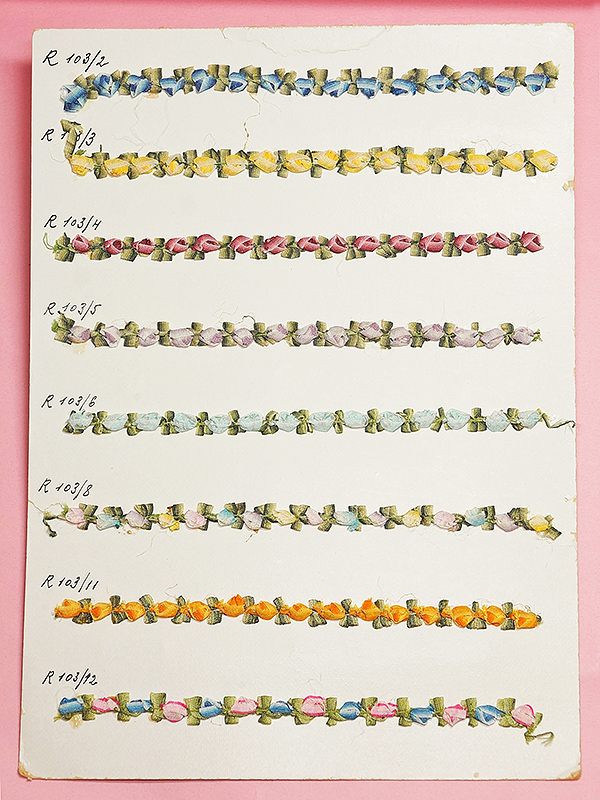 R 103/2
R 103/3
R 103/4
R 103/5
R 103/6
R 103/8
R 103/11
R 103/12